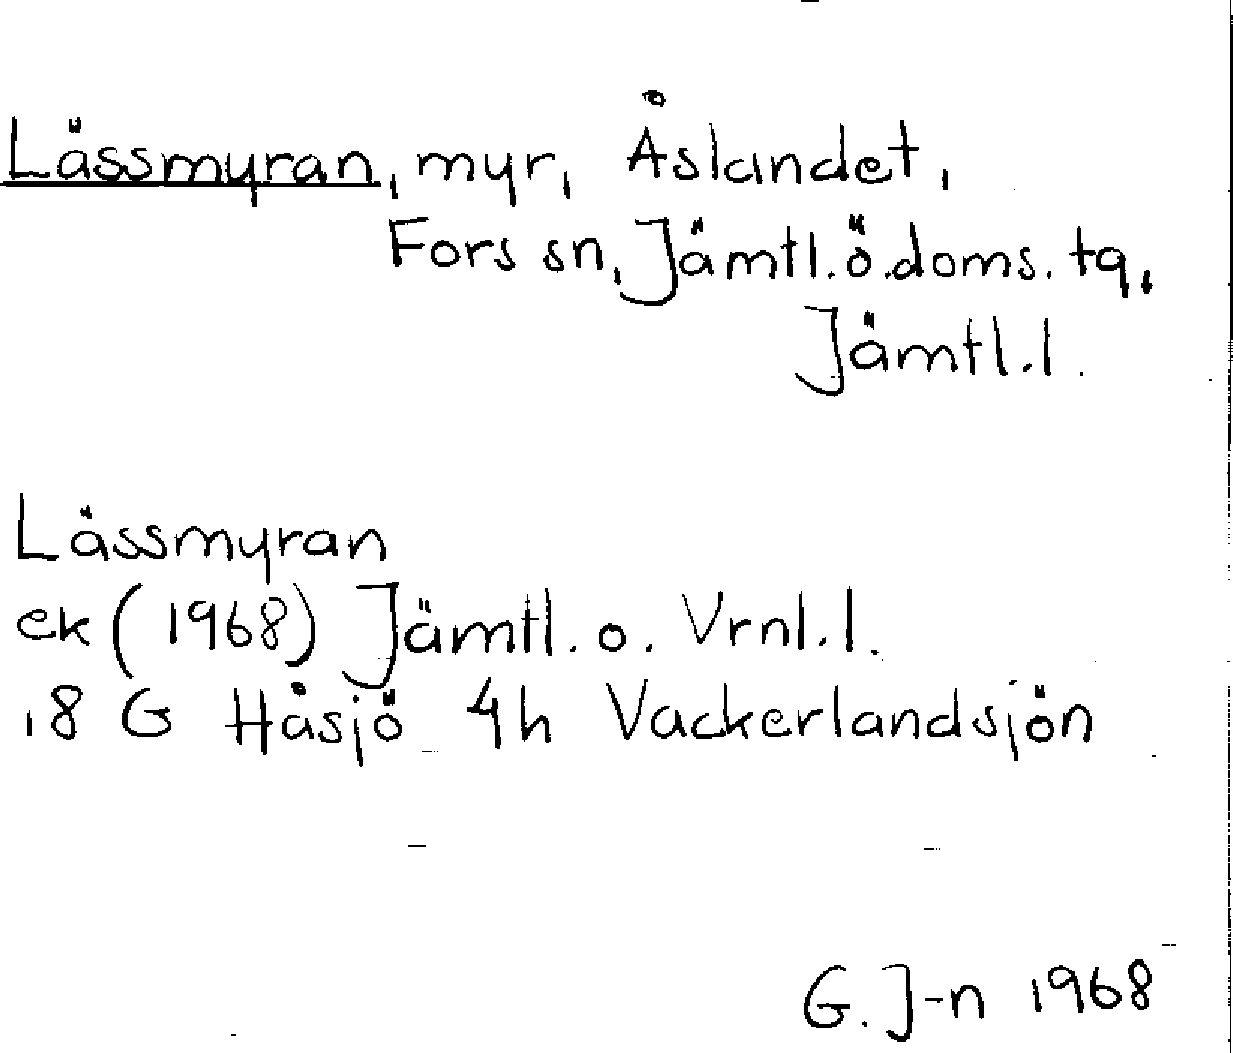 Lässmyran, myr, Åslandet,
Fors sn, Jämtl. ö. doms. tq,
Jämtl. l.
Lässmyran
ek (1968) Jämtl. o. Vrnl. l.
18 G Håsjö 4h Vackerlandsjön
G. J-n 1968